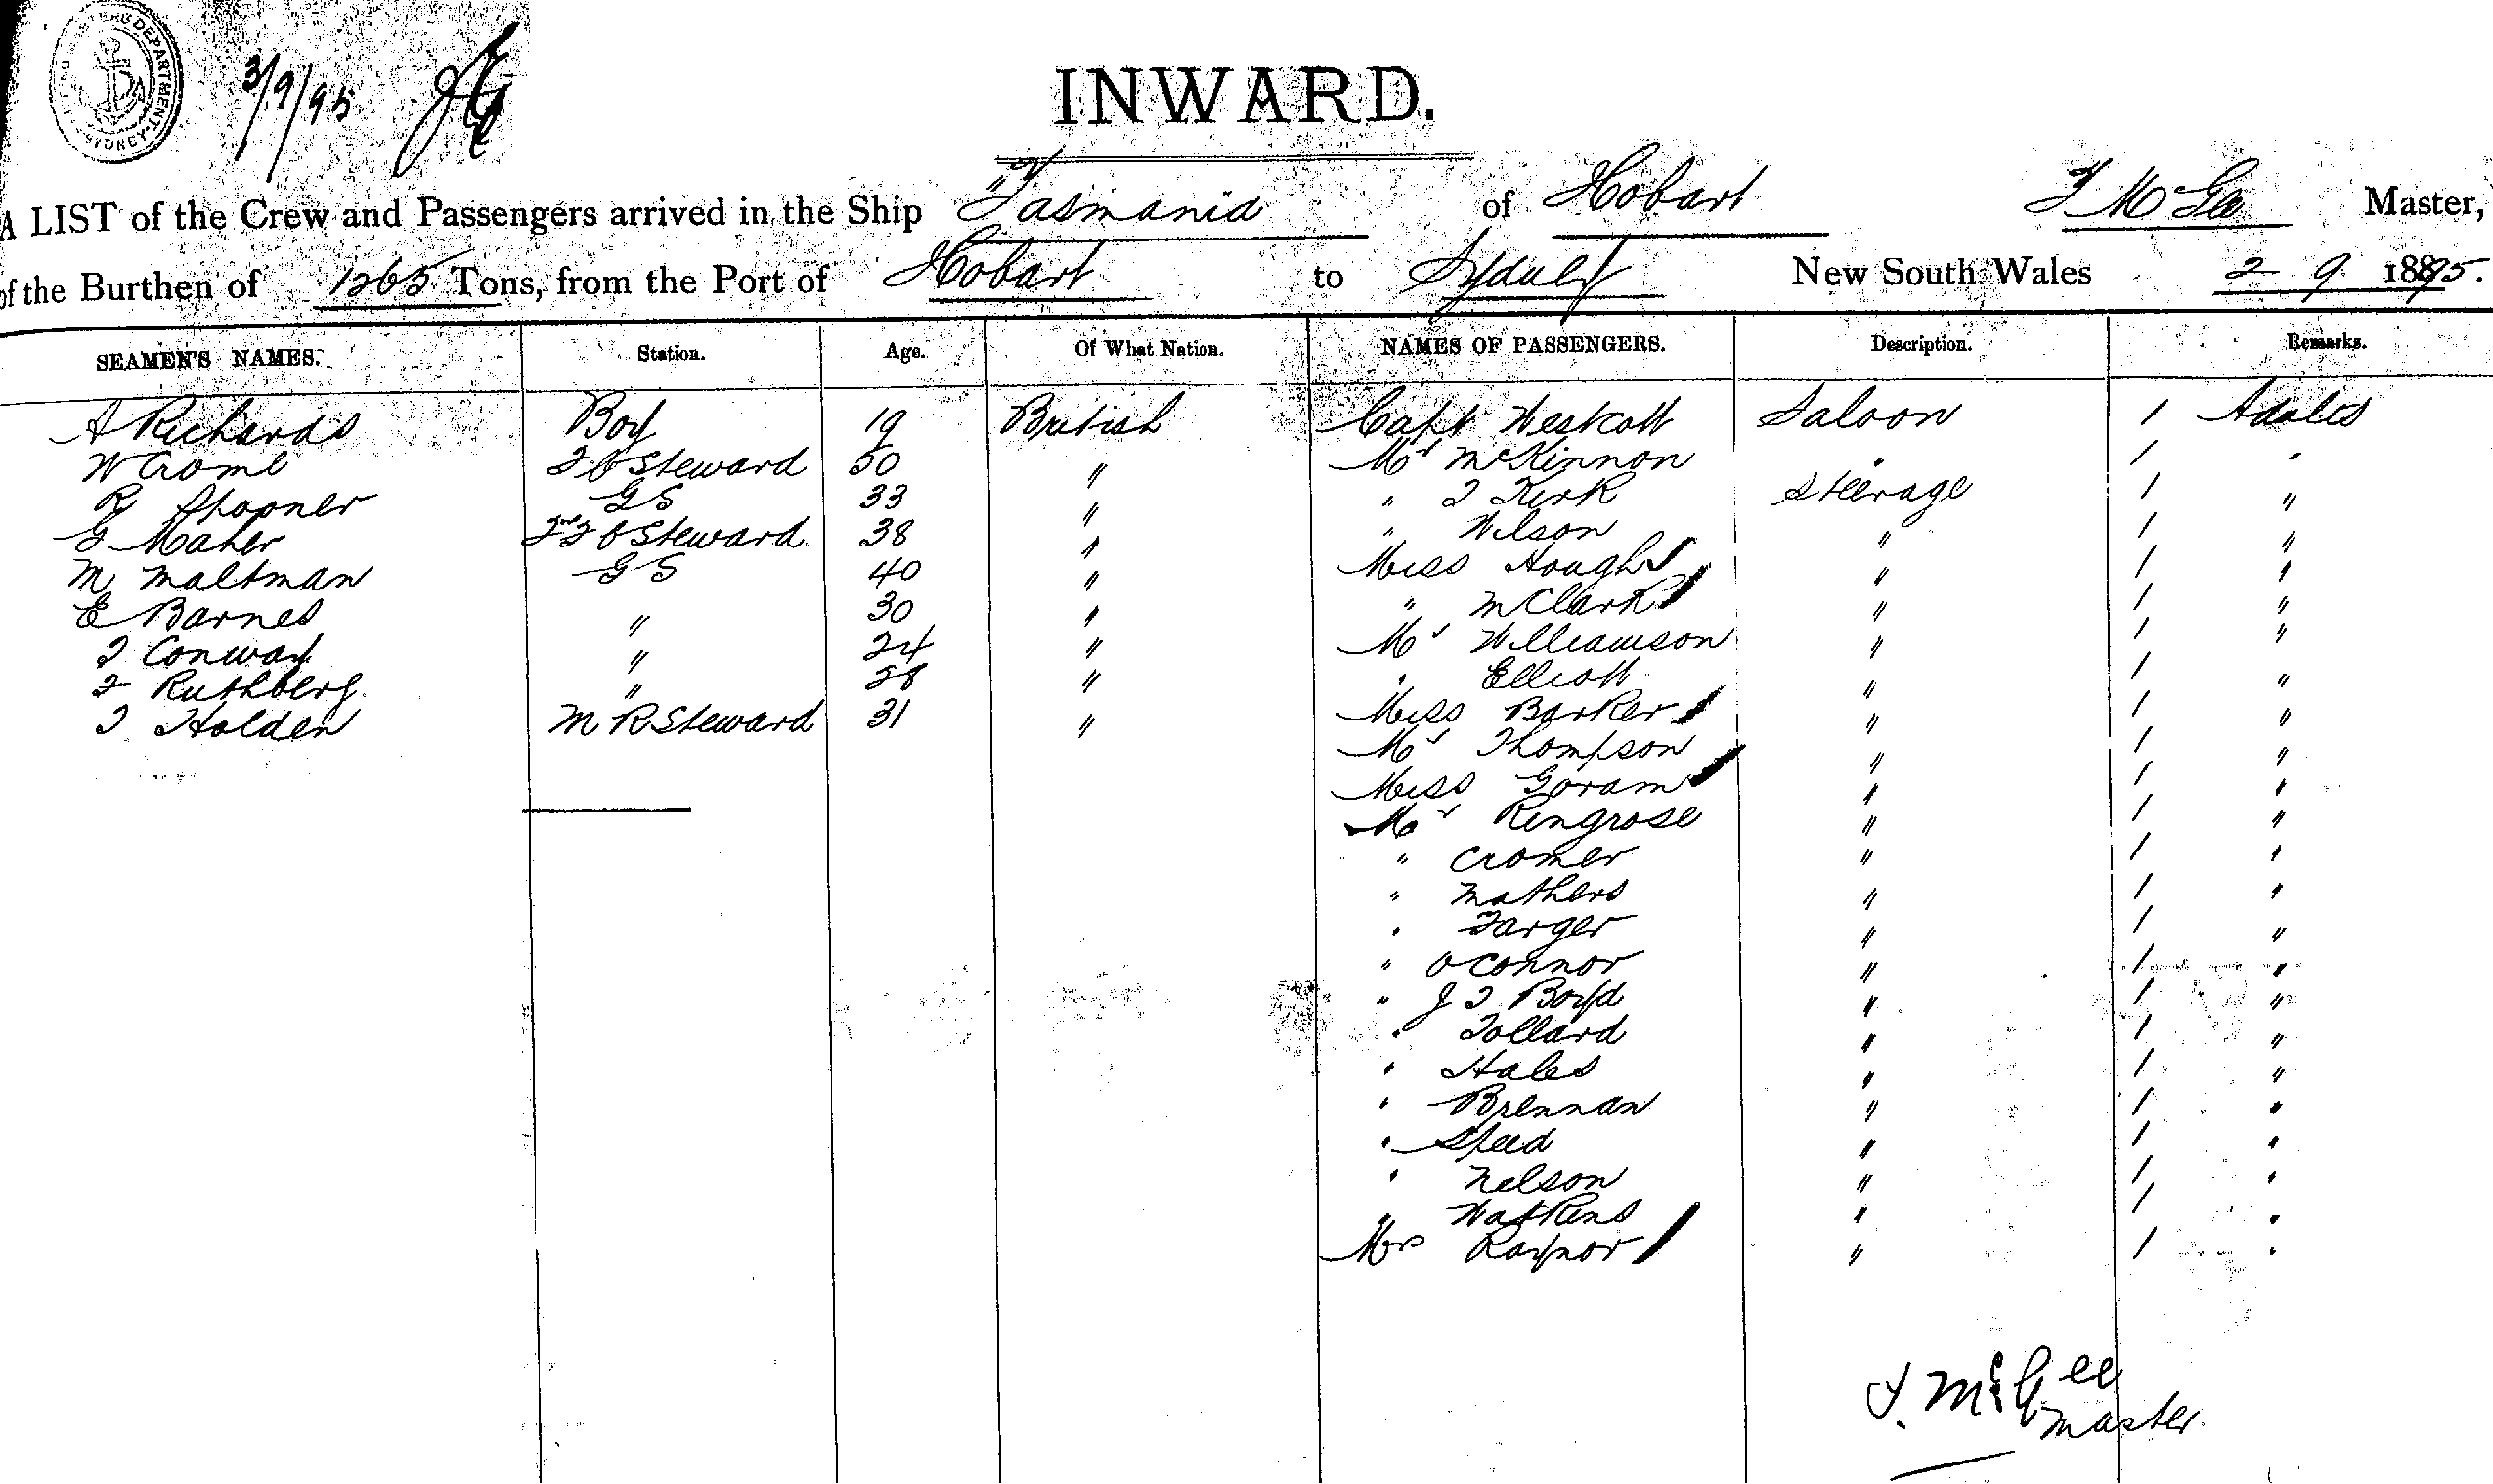 SHIPPING MASTER'S DEPARTMENT · SYDNEY
3/9/95
INWARD.
A LIST of the Crew and Passengers arrived in the Ship "Tasmania of Hobart T McGee Master,
of the Burthen of 1265 Tons, from the Port of Hobart to Sydney New South Wales 2 9 1895.
SEAMEN'S NAMES. Station. Age. Of What Nation. NAMES OF PASSENGERS. Description. Remarks.
A Richards Boy 19 British Capt Weskott Saloon 1 Adults
W Crome F C Steward 50 " Mr McKinnon " 1 "
R Spooner G S 33 " " T Kirk Steerage 1 "
G Maher 2nd F C Steward 38 " " Wilson " 1 "
M Maltman G S 40 " Miss Hough " 1 "
E Barnes " 30 " " M Clark " 1 "
T Conway " 24 " Mr Williamson " 1 "
F Ruthberg " 28 " " Elliott " 1 "
T Holden M R Steward 31 " Miss Barker " 1 "
Mr Thompson " 1 "
Miss Goram " 1 "
Mr Ringrose " 1 "
" Cromer " 1 "
" Mathers " 1 "
" Farger " 1 "
" O'Connor " 1 "
" J T Boyd " 1 "
" Tollard " 1 "
" Hales " 1 "
" Brennan " 1 "
" Speed " 1 "
" Nelson " 1 "
" Watkins " 1 "
Mrs Raynor " 1 "
T. McGee
Master